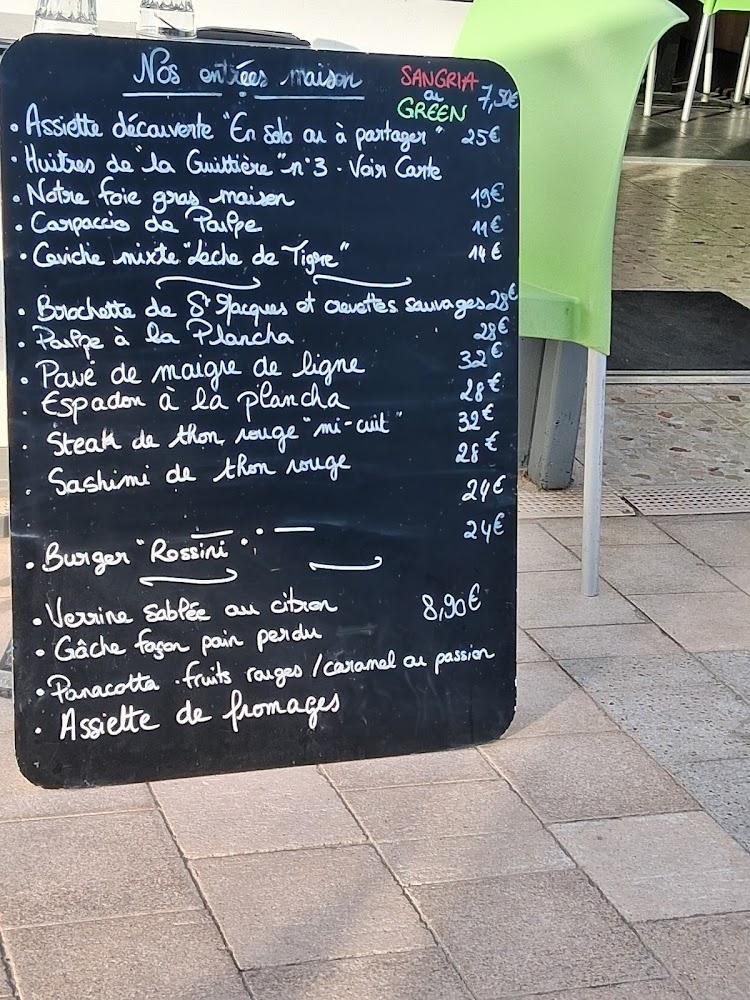 Nos entrées maison
SANGRIA
ou
GREEN
7,50€
• Assiette découverte "En solo ou à partager" 25€
• Huîtres de "la Guittière" n°3 - Voir Carte
• Notre foie gras maison 19€
• Carpaccio de Poulpe 11€
• Ceviche mixte "Leche de Tigre" 14€
• Brochette de St Jacques et crevettes sauvages 28€
• Poulpe à la Plancha 28€
• Pavé de maigre de ligne 32€
• Espadon à la plancha 28€
• Steak de thon rouge "mi-cuit" 32€
• Sashimi de thon rouge 28€
24€
• Burger "Rossini" 24€
• Verrine sablée au citron 8,90€
• Gâche façon pain perdu
• Panacotta - fruits rouges / caramel ou passion
• Assiette de fromages